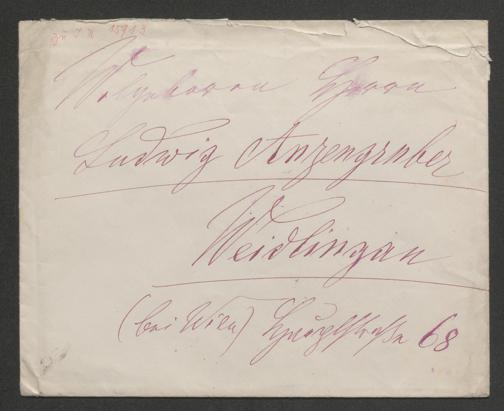 Wolgeboren Herrn
Ludwig Anzengruber
Weidlingau
(bei Wien) Hauptstraße 68